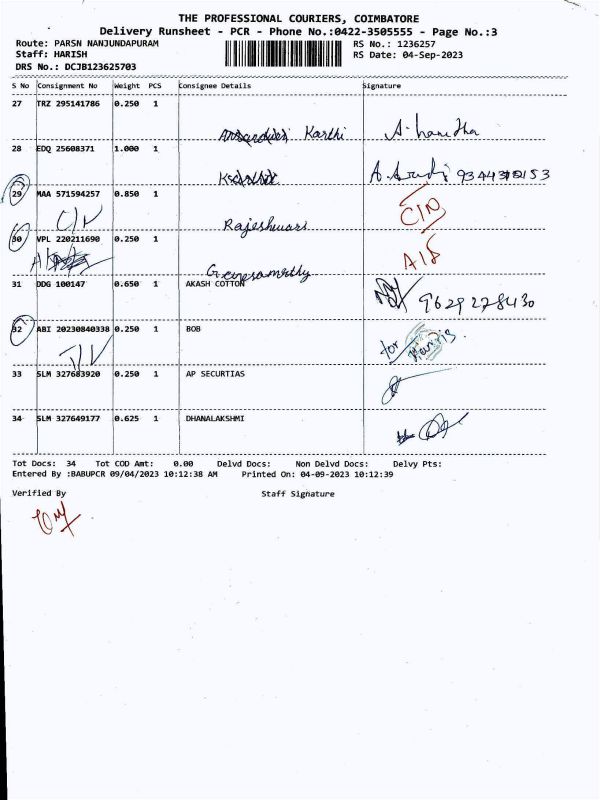 THE PROFESSIONAL COURIERS, COIMBATORE
Delivery Runsheet - PCR - Phone No.:0422-3505555 - Page No.:3
Route: PARSN NANJUNDAPURAM RS No.: 1236257
Staff: HARISH RS Date: 04-Sep-2023
DRS No.: DCJB123625703
S No Consignment No Weight PCS Consignee Details Signature
27 TRZ 295141786 0.250 1
Karthi
28 EDQ 25608371 1.000 1
29 MAA 571594257 0.850 1
Rajeshwari
30 VPL 220211690 0.250 1
31 DDG 100147 0.650 1 AKASH COTTON
9629228430
32 ABI 20230840338 0.250 1 BOB
for
33 SLM 327683920 0.250 1 AP SECURTIAS
34 SLM 327649177 0.625 1 DHANALAKSHMI
Tot Docs: 34 Tot COD Amt: 0.00 Delvd Docs: Non Delvd Docs: Delvy Pts:
Entered By :BABUPCR 09/04/2023 10:12:38 AM Printed On: 04-09-2023 10:12:39
Verified By Staff Signature